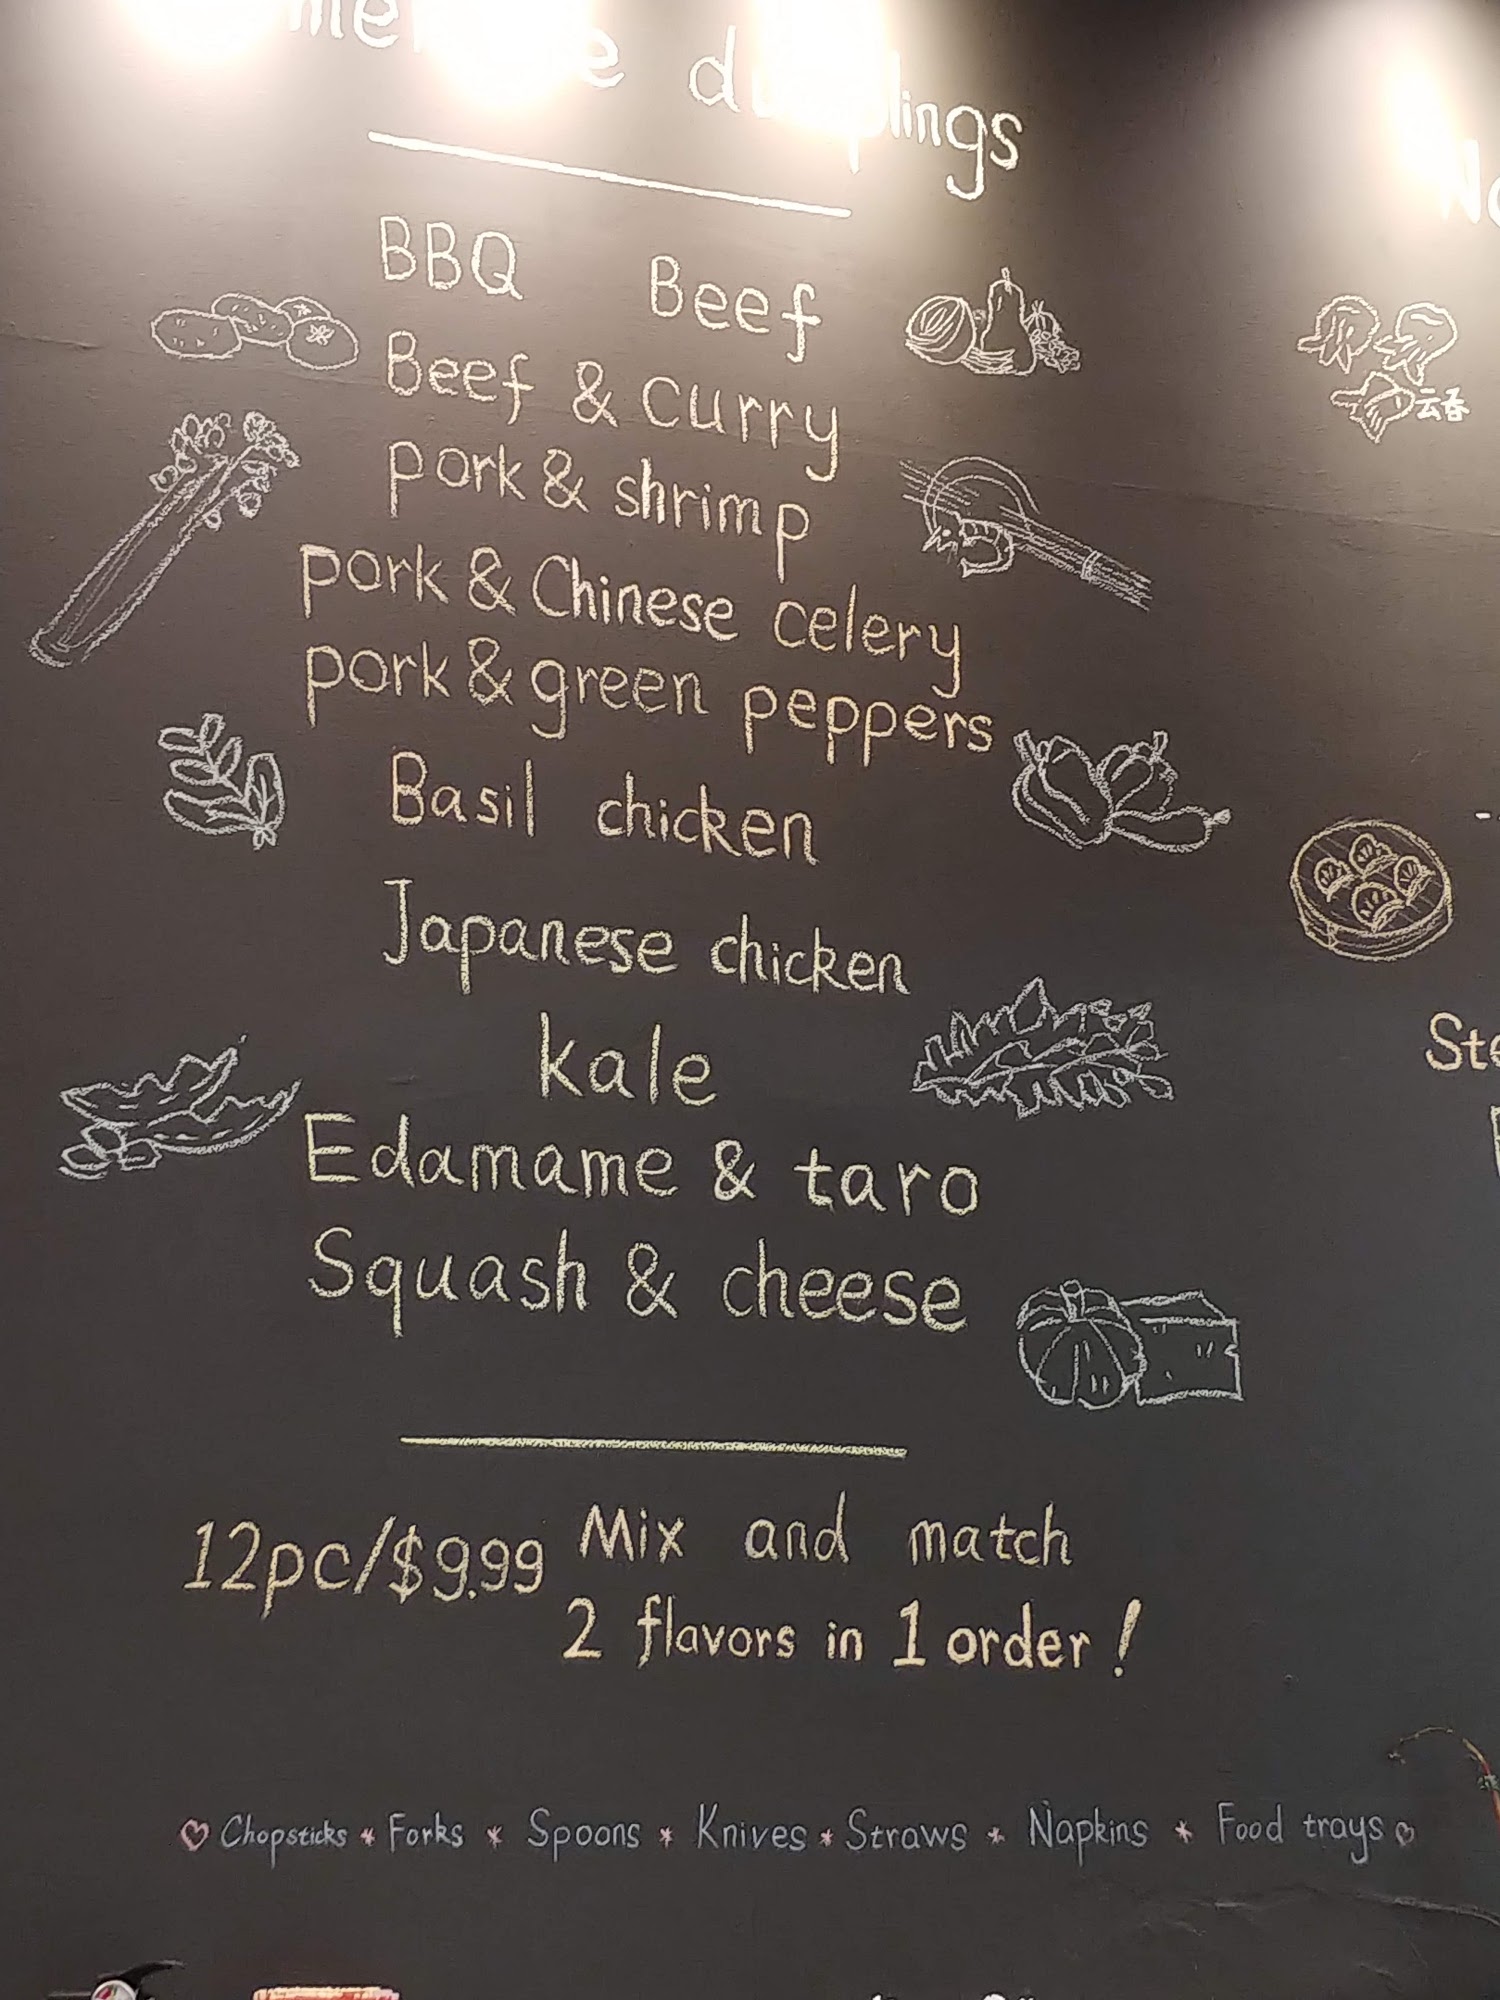 dumplings
BBQ Beef
Beef & curry
pork & shrimp
pork & Chinese celery
pork & green peppers
Basil chicken
Japanese chicken
kale
Edamame & taro
Squash & cheese
12pc/$9.99
Mix and match
2 flavors in 1 order!
Chopsticks * Forks * Spoons * Knives * Straws * Napkins * Food trays
云吞